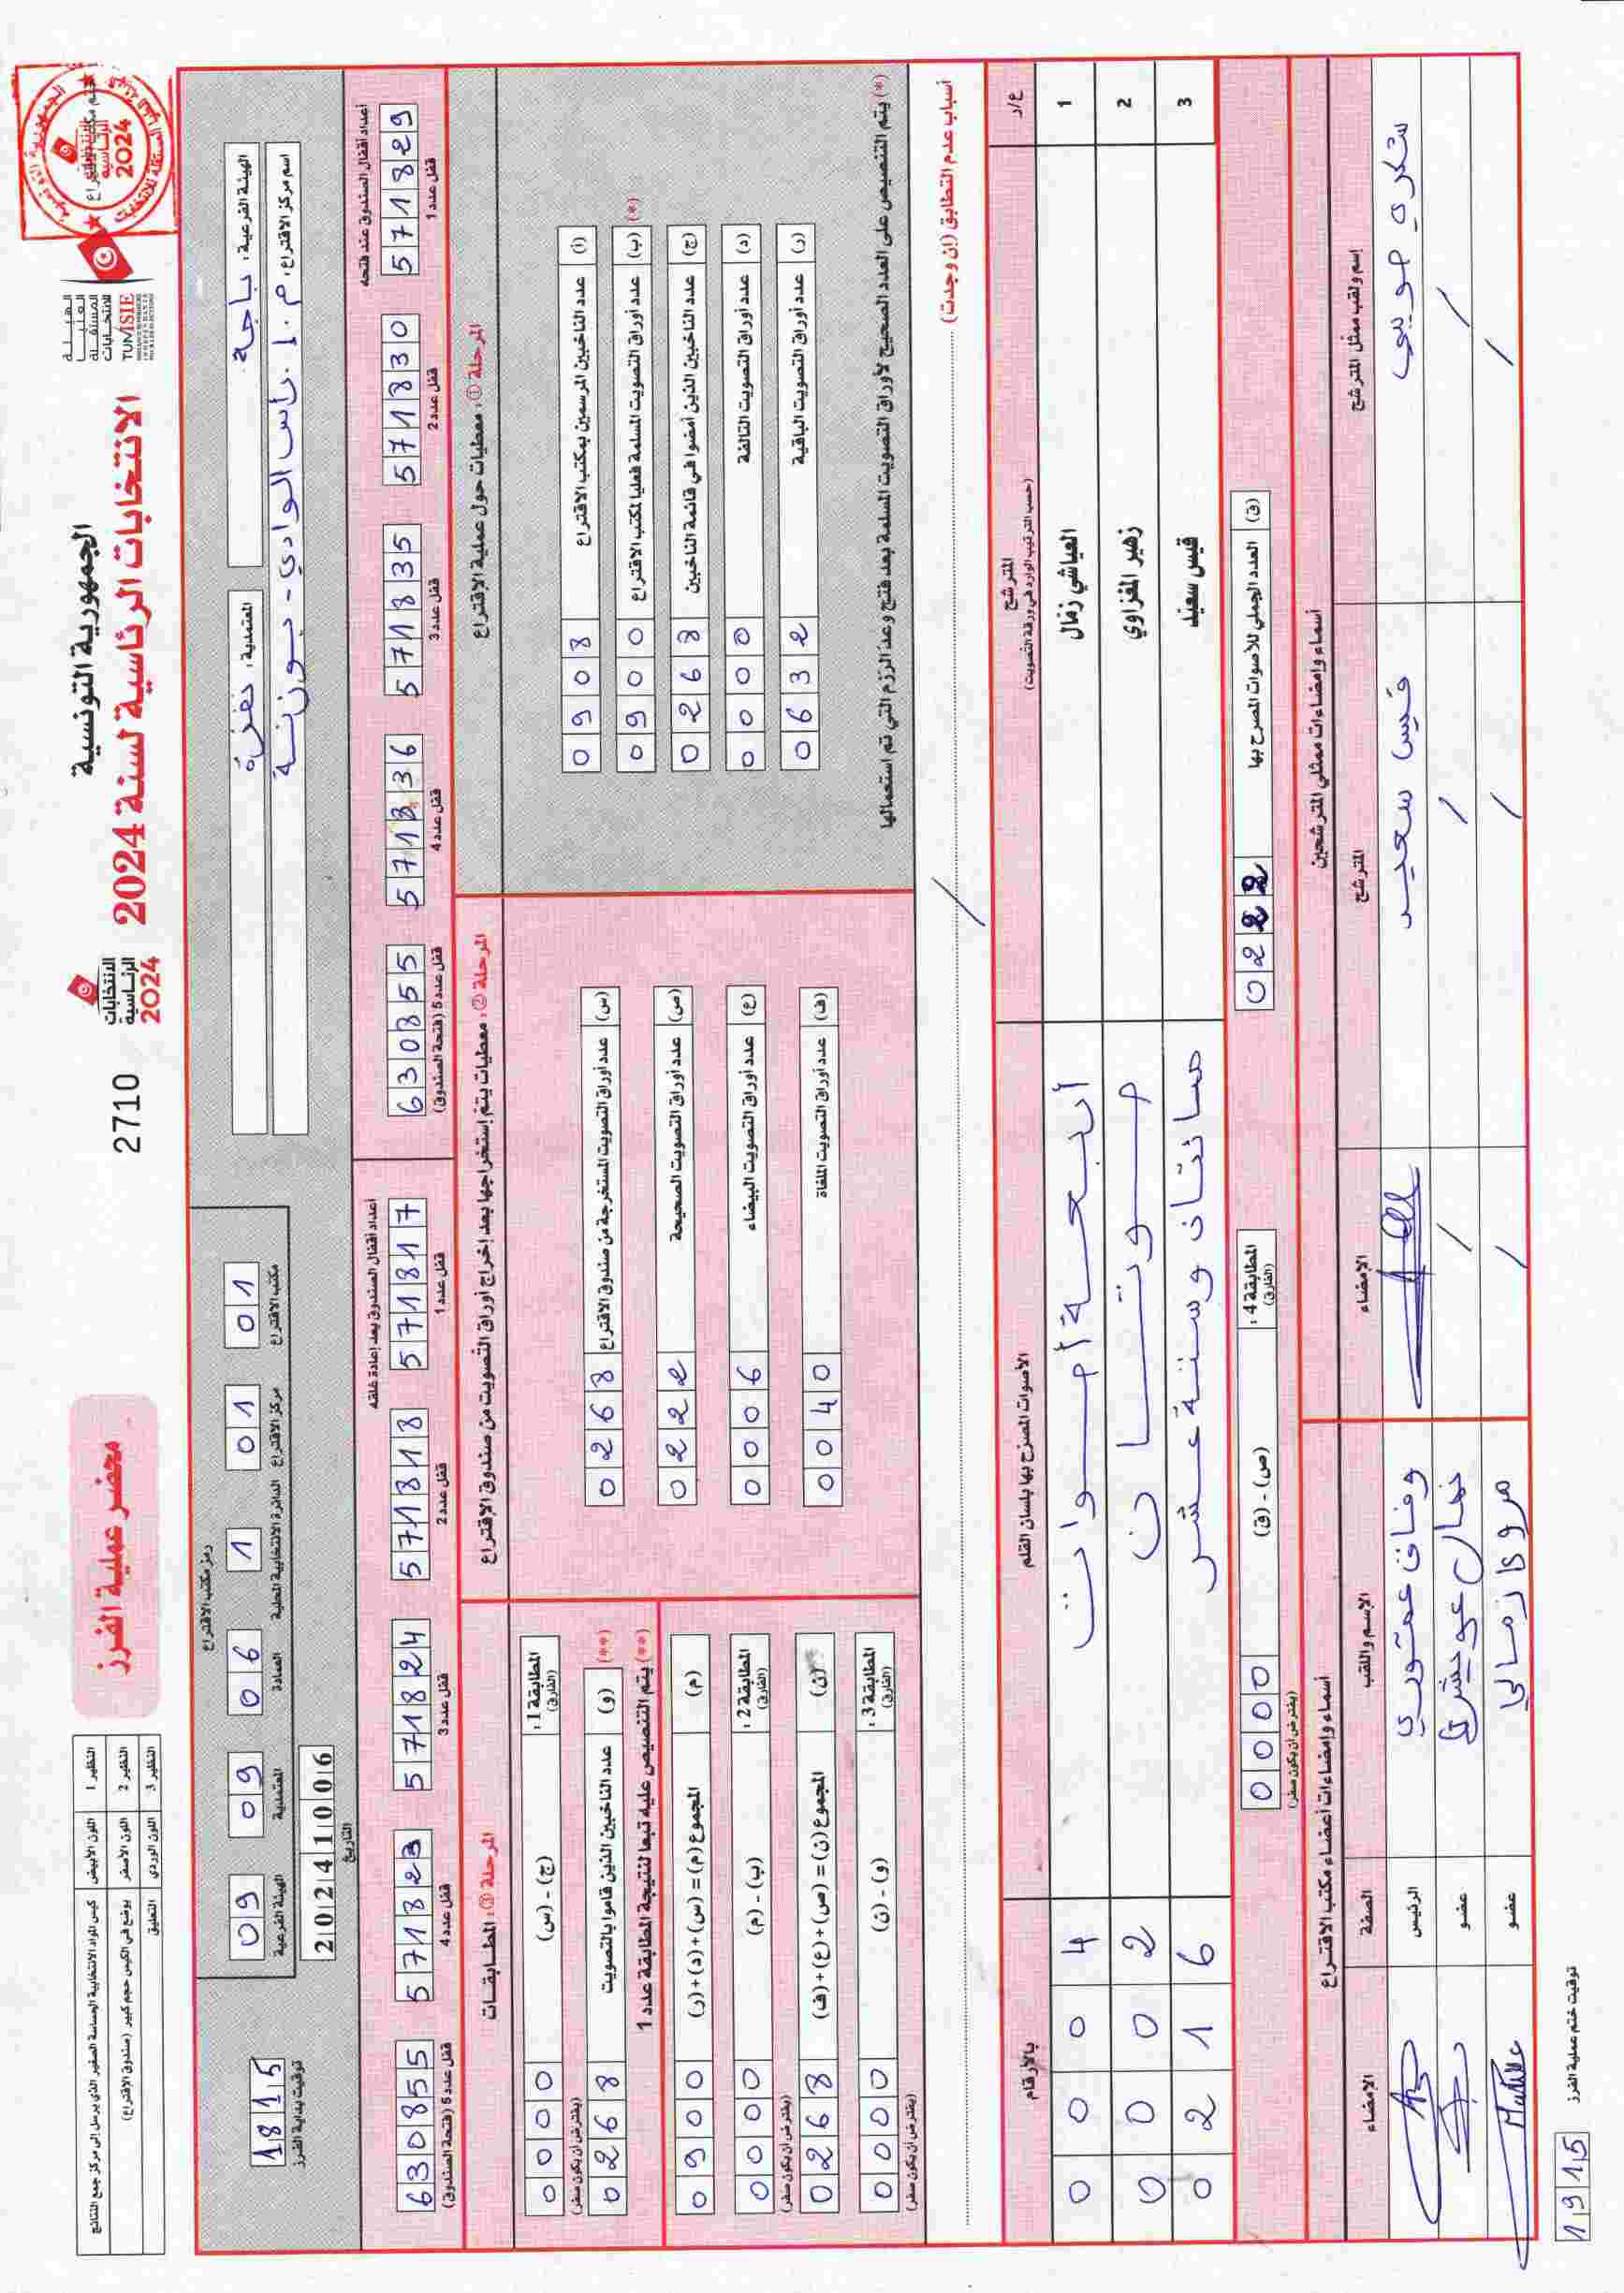 الجمهورية التونسية
الانتخابات الرئاسية لسنة 2024
الهيئة
العليا
المستقلة
للانتخابات
TUNISIE
الانتخابات
الرئاسية
2024
2710
محضر عملية الفرز
النظير 1 اللون الأبيض كيس المواد الانتخابية الحساسة الصغير الذي يرسل إلى مركز جمع النتائج
النظير 2 اللون الأصفر يوضع في الكيس حجم كبير (صندوق الاقتراع)
النظير 3 اللون الوردي التعليق
الهيئة الفرعية: باجة
المعتمدية: نفزة
اسم مركز الاقتراع: م.إ. راس الوادي - بوزنة
رمز مكتب الاقتراع
01 مكتب الاقتراع
01 مركز الاقتراع
1 الدائرة الانتخابية المحلية
06 العمادة
09 المعتمدية
09 الهيئة الفرعية
20241006
التاريخ
1815
توقيت بداية الفرز
أعداد أقفال الصندوق عند فتحه
571829 قفل عدد 1
571830 قفل عدد 2
571835 قفل عدد 3
571836 قفل عدد 4
630855 قفل عدد 5 (فتحة الصندوق)
أعداد أقفال الصندوق بعد إعادة غلقه
571817 قفل عدد 1
571818 قفل عدد 2
571824 قفل عدد 3
571823 قفل عدد 4
630855 قفل عدد 5 (فتحة الصندوق)
المرحلة ①: معطيات حول عملية الاقتراع
(أ) عدد الناخبين المرسمين بمكتب الاقتراع 0908
(ب) عدد أوراق التصويت المسلمة فعليا لمكتب الاقتراع 0900 (*)
(ج) عدد الناخبين الذين أمضوا في قائمة الناخبين 0268
(د) عدد أوراق التصويت التالفة 0000
(ر) عدد أوراق التصويت الباقية 0632
(*) يتم التنصيص على العدد الصحيح لأوراق التصويت المسلمة بعد فتح وعد الرزم التي تم استعمالها
المرحلة ②: معطيات يتم إستخراجها بعد إخراج أوراق التصويت من صندوق الاقتراع
(س) عدد أوراق التصويت المستخرجة من صندوق الاقتراع 0268
(ص) عدد أوراق التصويت الصحيحة 0222
(ع) عدد أوراق التصويت البيضاء 0006
(ف) عدد أوراق التصويت الملغاة 0040
المرحلة ③: المطابقات
المطابقة 1: (الفارق) (ج) - (س) 0000
(يفترض أن يكون صفر)
(**) (و) عدد الناخبين الذين قاموا بالتصويت 0268
(**) يتم التنصيص عليه تبعا لنتيجة المطابقة عدد 1
(م) المجموع (م) = (س)+(د)+(ر) 0900
المطابقة 2: (الفارق) (ب) - (م) 0000
(يفترض أن يكون صفر)
(ن) المجموع (ن) = (ص)+(ع)+(ف) 0268
المطابقة 3: (الفارق) (و) - (ن) 0000
(يفترض أن يكون صفر)
أسباب عدم التطابق (إن وجدت) /
ع/ر المترشح (حسب الترتيب الوارد في ورقة التصويت) الأصوات المصرح بها بلسان القلم بالأرقام
1 العياشي زمال أربعة أصوات 0004
2 زهير المغزاوي صوتان 0002
3 قيس سعيد مائتان وستة عشر 0216
(ق) العدد الجملي للأصوات المصرح بها 0222
المطابقة 4: (الفارق) (ص) - (ق) 0000
(يفترض أن يكون صفر)
أسماء وإمضاءات ممثلي المترشحين
إسم ولقب ممثل المترشح المترشح الإمضاء
قيس سعيد
/ / /
/ / /
أسماء وإمضاءات أعضاء مكتب الاقتراع
الإسم واللقب الصفة الإمضاء
الرئيس
عضو
عضو
توقيت ختم عملية الفرز 1915